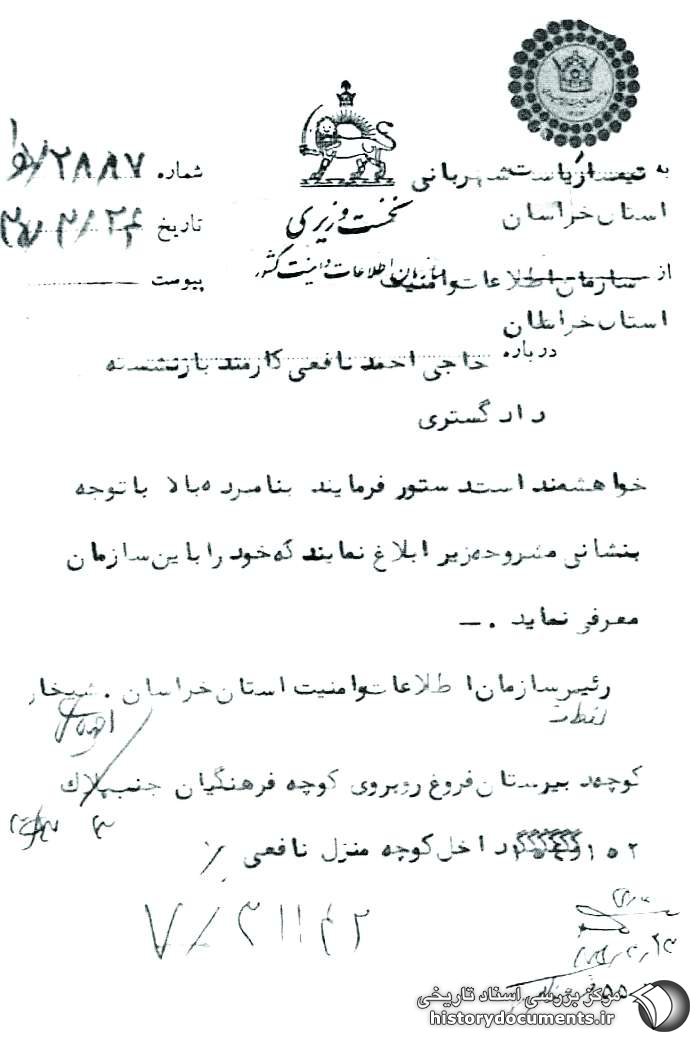 به تیمسار ریاست شهربانی
استان خراسان
از سازمان اطلاعات و امنیت
استان خراسان
شماره ۲۸۸۷
تاریخ
پیوست
نخست وزیری
سازمان اطلاعات و امنیت کشور
درباره حاجی احمد نافعی کارمند بازنشسته
دادگستری
خواهشمند است دستور فرمایند بنامبرده بالا باتوجه
بنشانی مشروحه زیر ابلاغ نمایند که خود را باین سازمان
معرفی نماید . ــ
رئیس سازمان اطلاعات و امنیت استان خراسان .
کوچه دبیرستان فروغ روبروی کوچه فرهنگیان جنب پلاک
۱۵۲ داخل کوچه منزل نافعی
مرکز بررسی اسناد تاریخی
historydocuments.ir